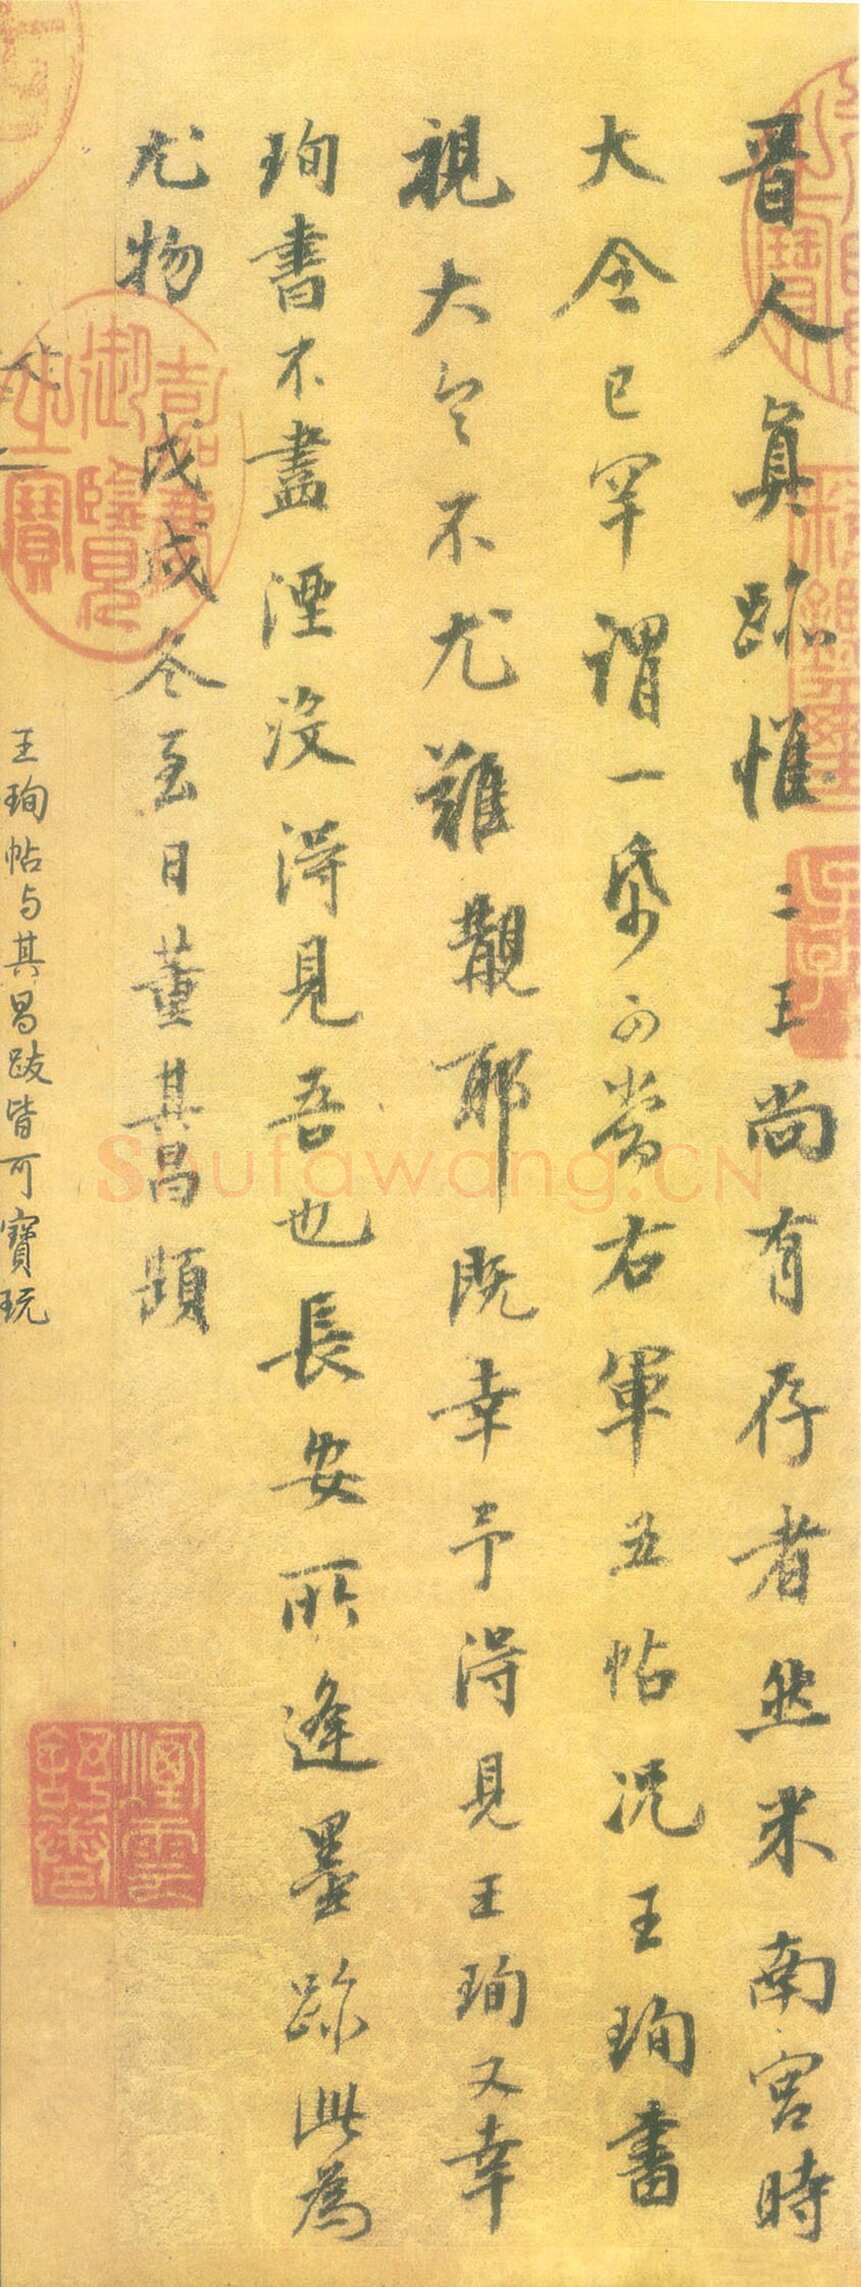 晉人真跡惟二王尚有存者然米南宮時
大令已罕謂一帋可當右軍五帖況王珣書
視大令不尤難覯耶既幸予得見王珣又幸
珣書不盡湮沒得見吾也長安所逢墨跡此為
尤物 戊戌冬至日董其昌題
王珣帖与其昌跋皆可寶玩
嘉慶御覽之寶
Shufawang.CN